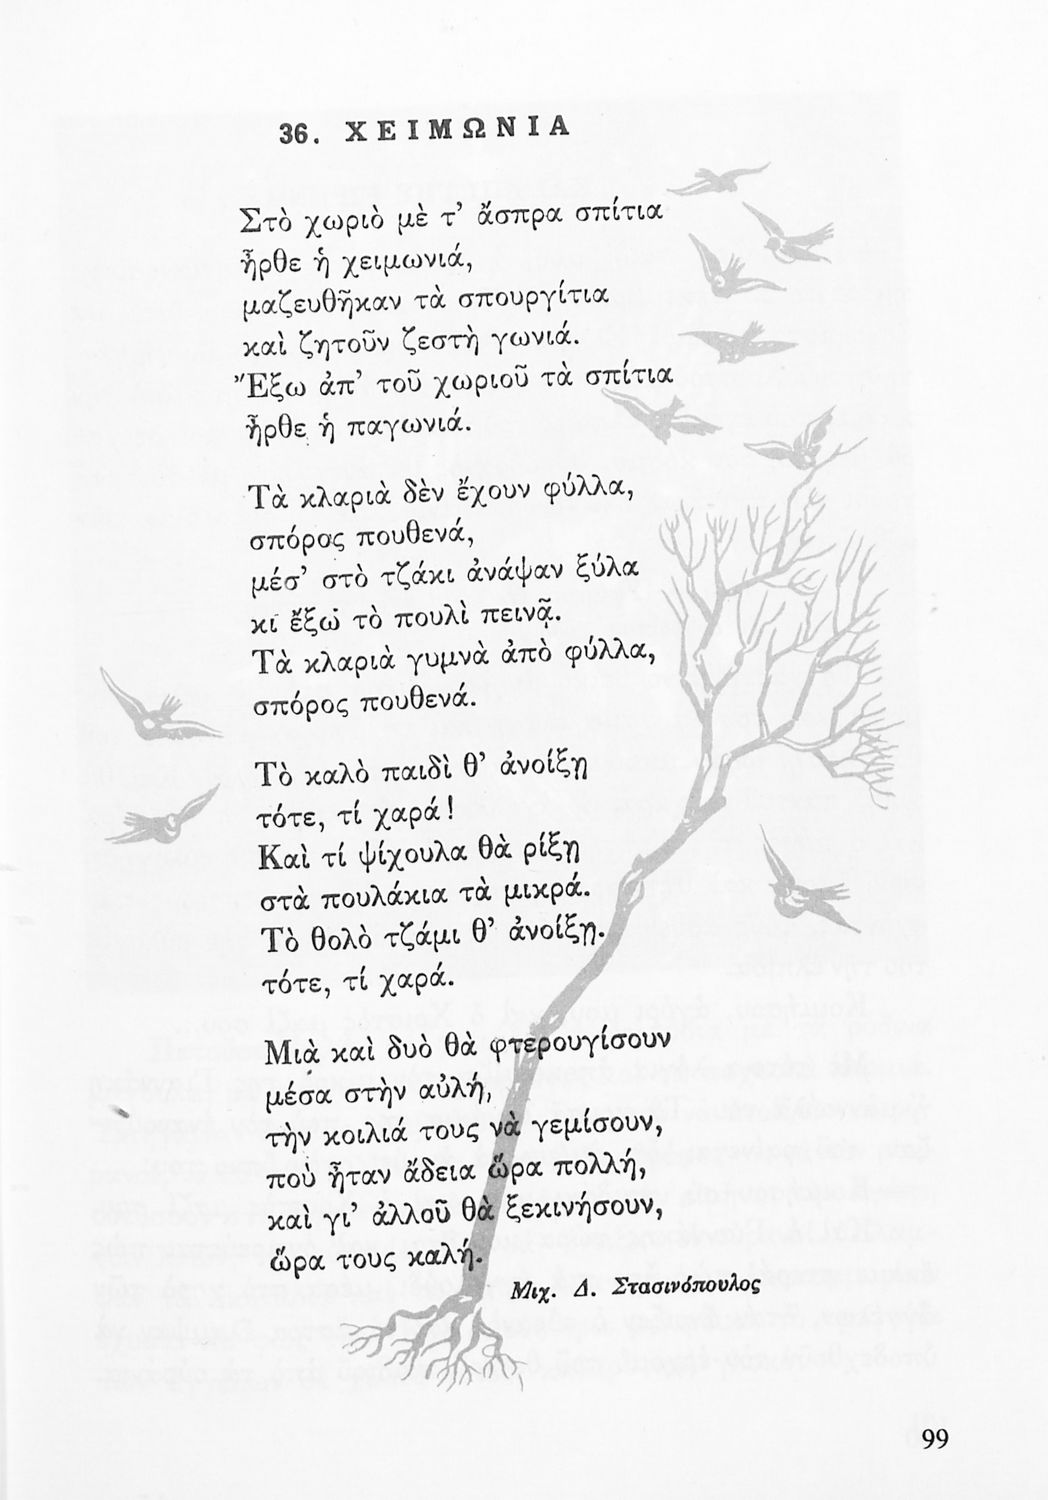 36. ΧΕΙΜΩΝΙΑ
Στὸ χωριὸ μὲ τ’ ἄσπρα σπίτια
ἦρθε ἡ χειμωνιά,
μαζευθῆκαν τὰ σπουργίτια
καὶ ζητοῦν ζεστὴ γωνιά.
Ἔξω ἀπ’ τοῦ χωριοῦ τὰ σπίτια
ἦρθε ἡ παγωνιά.
Τὰ κλαριὰ δὲν ἔχουν φύλλα,
σπόρος πουθενά,
μέσ’ στὸ τζάκι ἀνάψαν ξύλα
κι ἔξω τὸ πουλὶ πεινᾷ.
Τὰ κλαριὰ γυμνὰ ἀπὸ φύλλα,
σπόρος πουθενά.
Τὸ καλὸ παιδὶ θ’ ἀνοίξῃ
τότε, τί χαρά!
Καὶ τί ψίχουλα θὰ ρίξῃ
στὰ πουλάκια τὰ μικρά.
Τὸ θολὸ τζάμι θ’ ἀνοίξῃ.
τότε, τί χαρά.
Μιὰ καὶ δυὸ θὰ φτερουγίσουν
μέσα στὴν αὐλή,
τὴν κοιλιά τους νὰ γεμίσουν,
ποὺ ἦταν ἄδεια ὥρα πολλή,
καὶ γι’ ἀλλοῦ θὰ ξεκινήσουν,
ὥρα τους καλή.
Μιχ. Δ. Στασινόπουλος
99